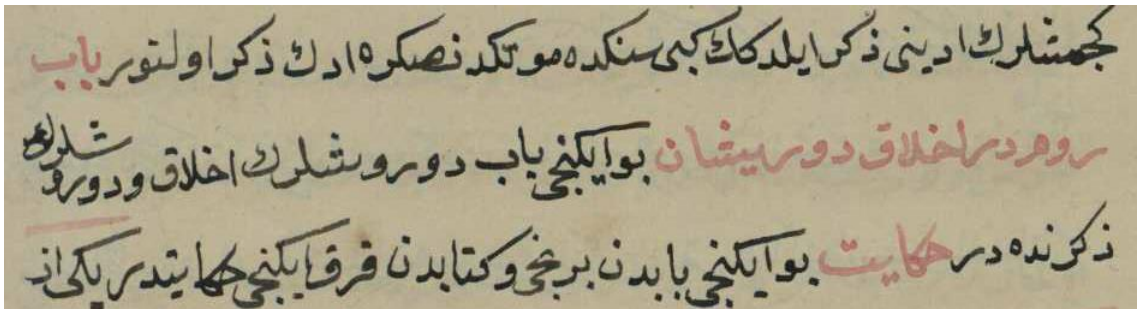 كچمشلرك ادينى ذكر ايلدكك كبى سنكده موتكدنصكره ادك ذكر اولنور باب
دوم در اخلاق درويشان بو ايكنجى باب درويشلرك اخلاق و درويشلرك
ذكرنده در حكايت بو ايكنجى بابدن برنجى و كتابدن قرق ايكنجى حكايتدر يكى از